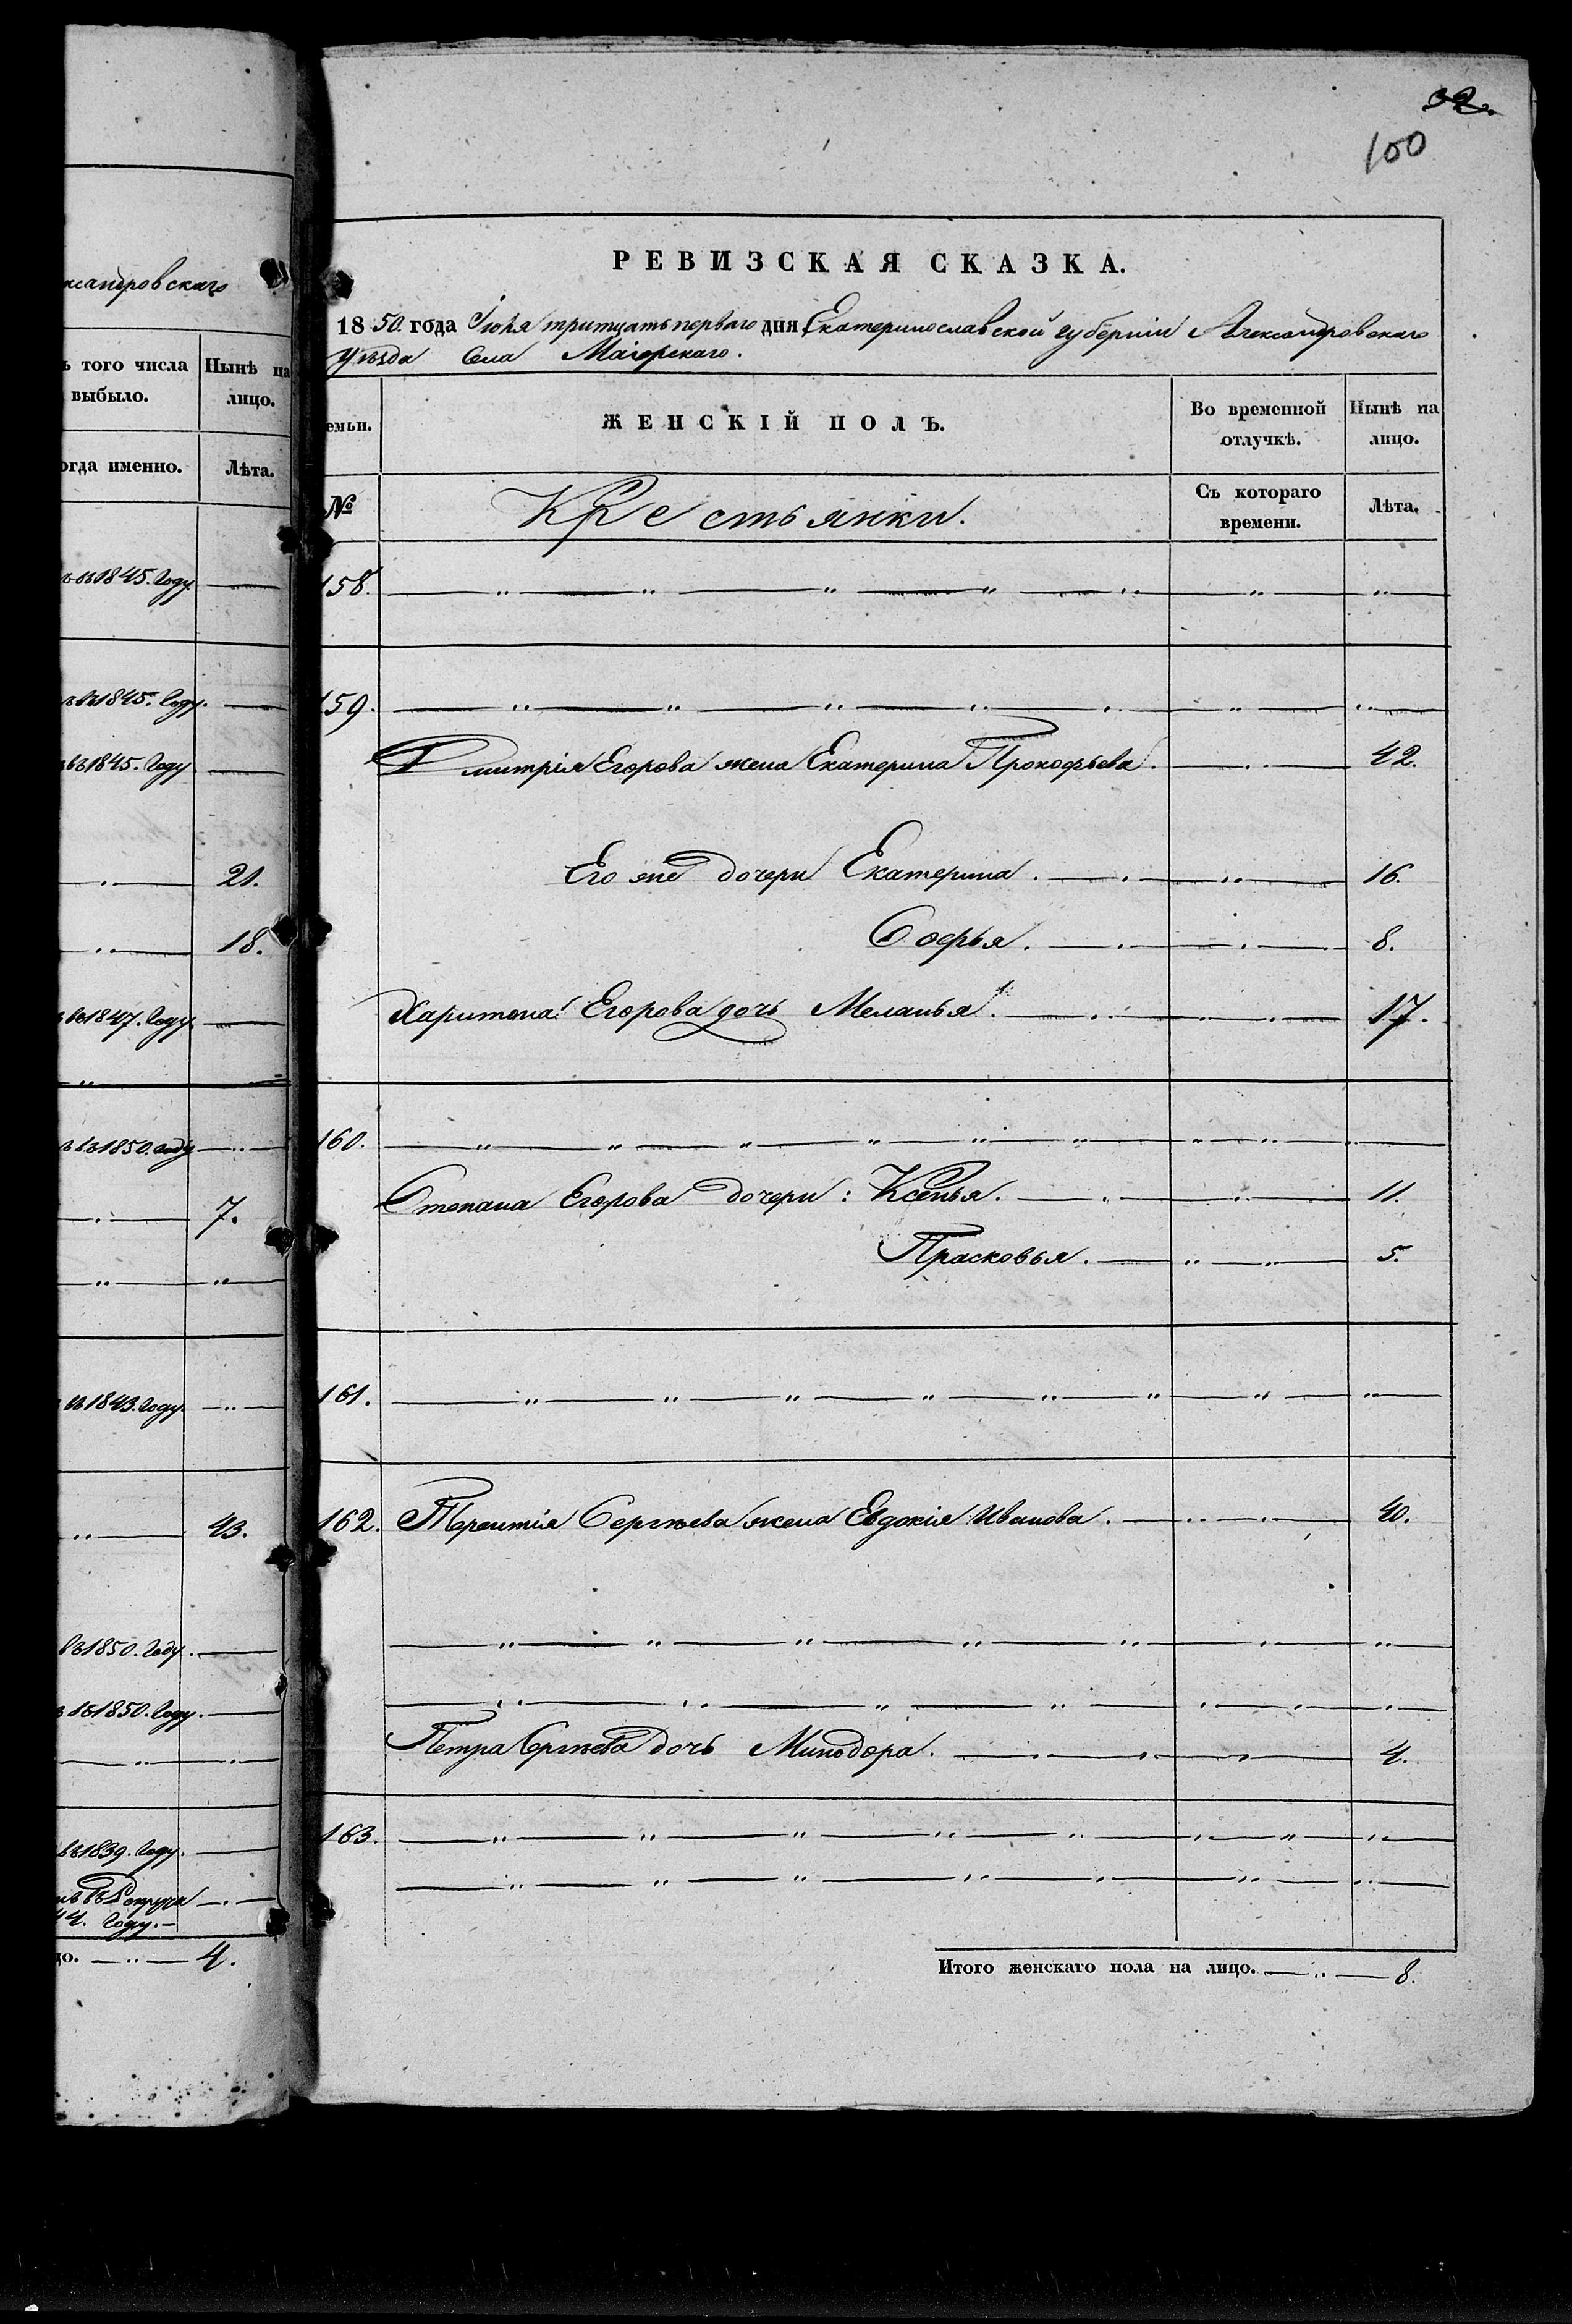 32.
100
ксандровскаго
ъ того числа
выбыло.
Нынѣ на
лицо.
огда именно.
Лѣта.
въ 1845. Году.
въ 1845. Году.
въ 1845. Году
21.
18.
въ 1847. Году.
въ 1850. году
7.
въ 1843. Году.
43.
въ 1850. Году.
въ 1850. Году.
въ 1839. Году.
въ Рекруты
44. Году.
цо. 4.
РЕВИЗСКАЯ СКАЗКА.
1850. года Іюля тритцать перваго дня Екатеринославской губерніи Александровскаго
уѣзда Села Маіорскаго.
емьи.
ЖЕНСКІЙ ПОЛЪ.
Во временной
отлучкѣ.
Нынѣ на
лицо.
№
Крестьянки.
Съ котораго
времени.
Лѣта.
158.
159.
Дмитрія Егорова жена Екатерина Прокофьева. 42.
Его же дочери Екатерина. 16.
Софья. 8.
Харитона Егорова дочь Меланья. 17.
160.
Степана Егорова дочери: Ксенья. 11.
Прасковья. 5.
161.
162. Терентія Сергѣева жена Евдокія Иванова. 40.
Петра Сергѣева дочь Минодора. 4.
163.
Итого женскаго пола на лицо. 8.